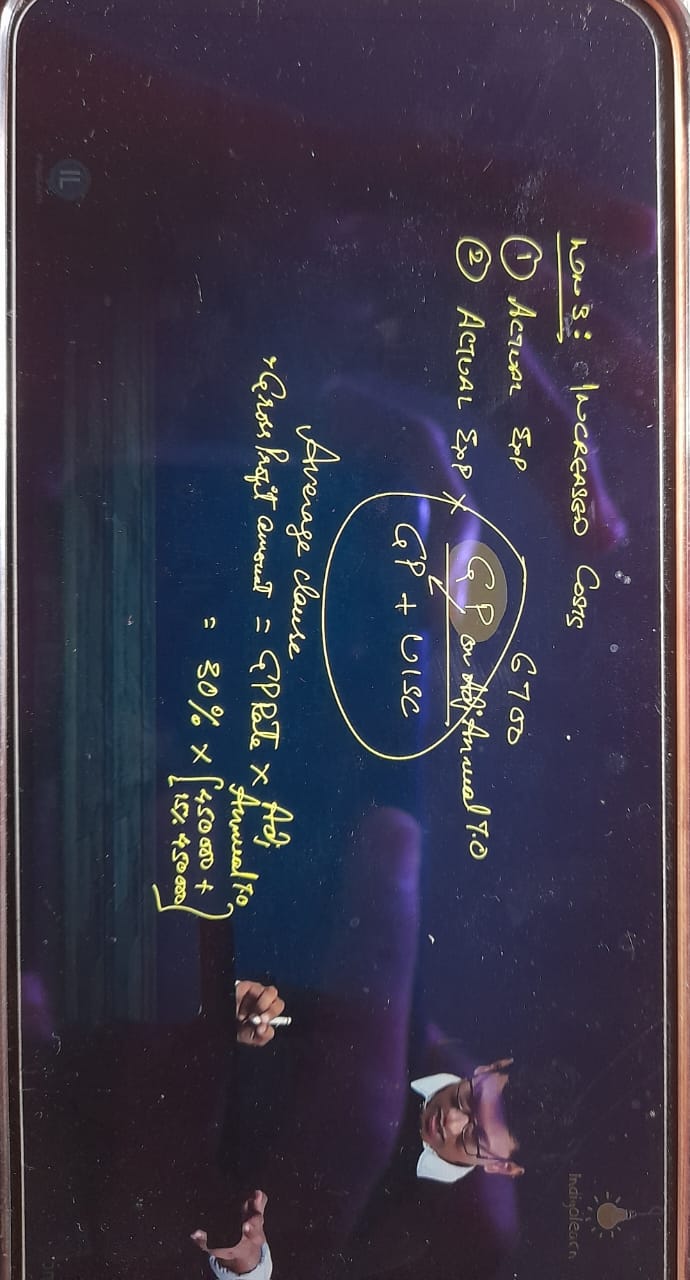 WN 3: INCREASED COSTS
① ACTUAL EXP 6700
② ACTUAL EXP × GP on Adj. Annual T.O
GP + UISC
Average clause
* Gross Profit amount = GP Rate × Adj Annual TO
= 30% × [450000 +
15% 450000]
IL
Indigolearn